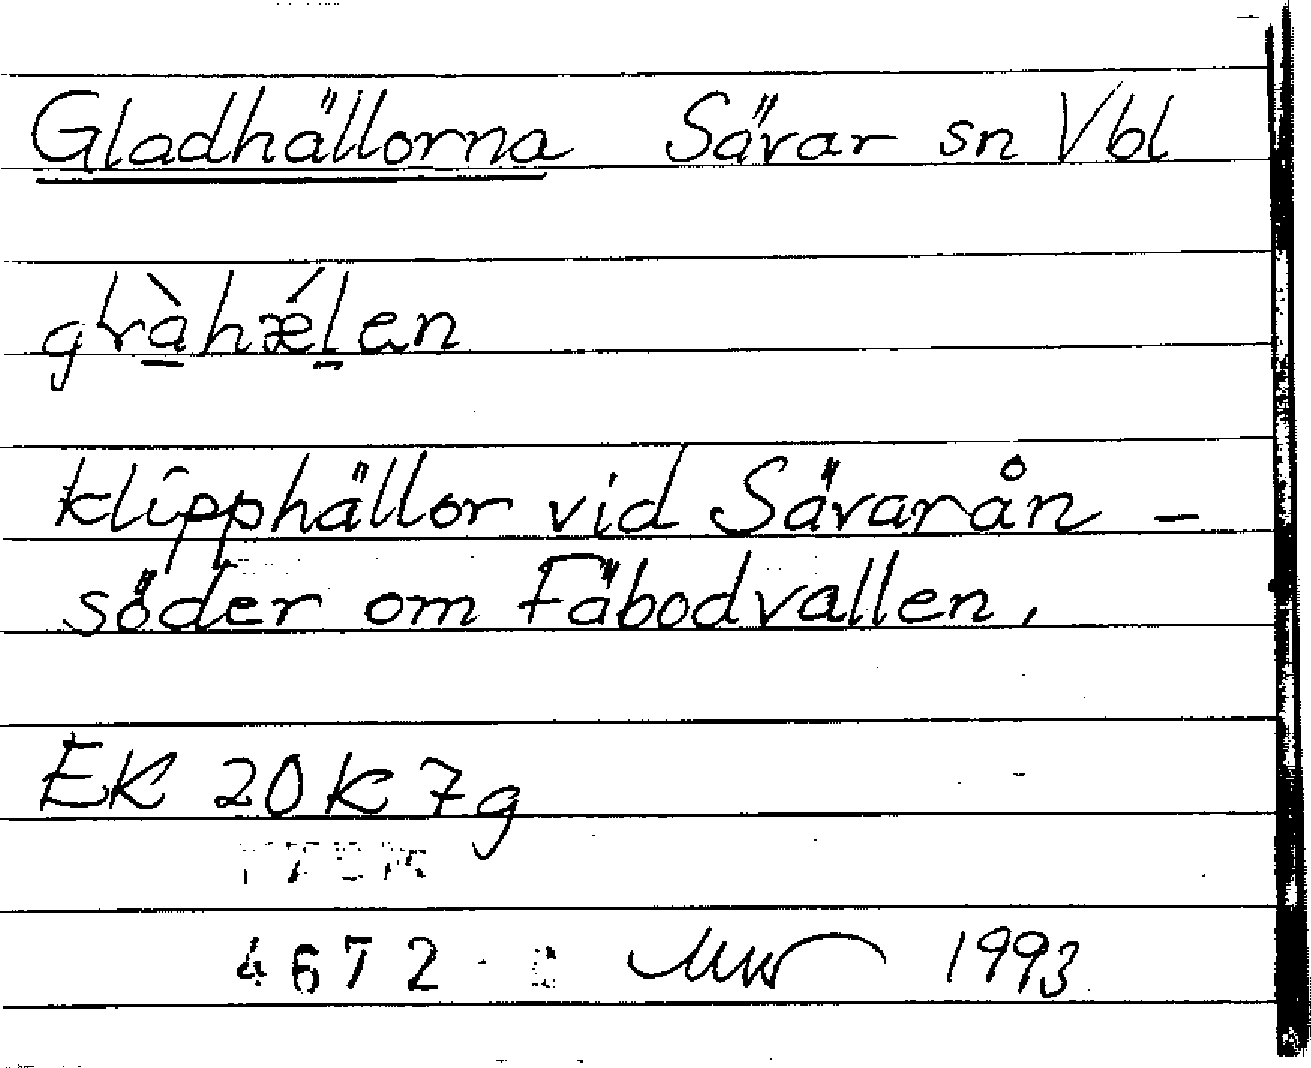 Gladhällorna Sävar sn Vbl
klipphällor vid Sävarån -
söder om Fäbodvallen.
EK 20K 7g
4672 1993